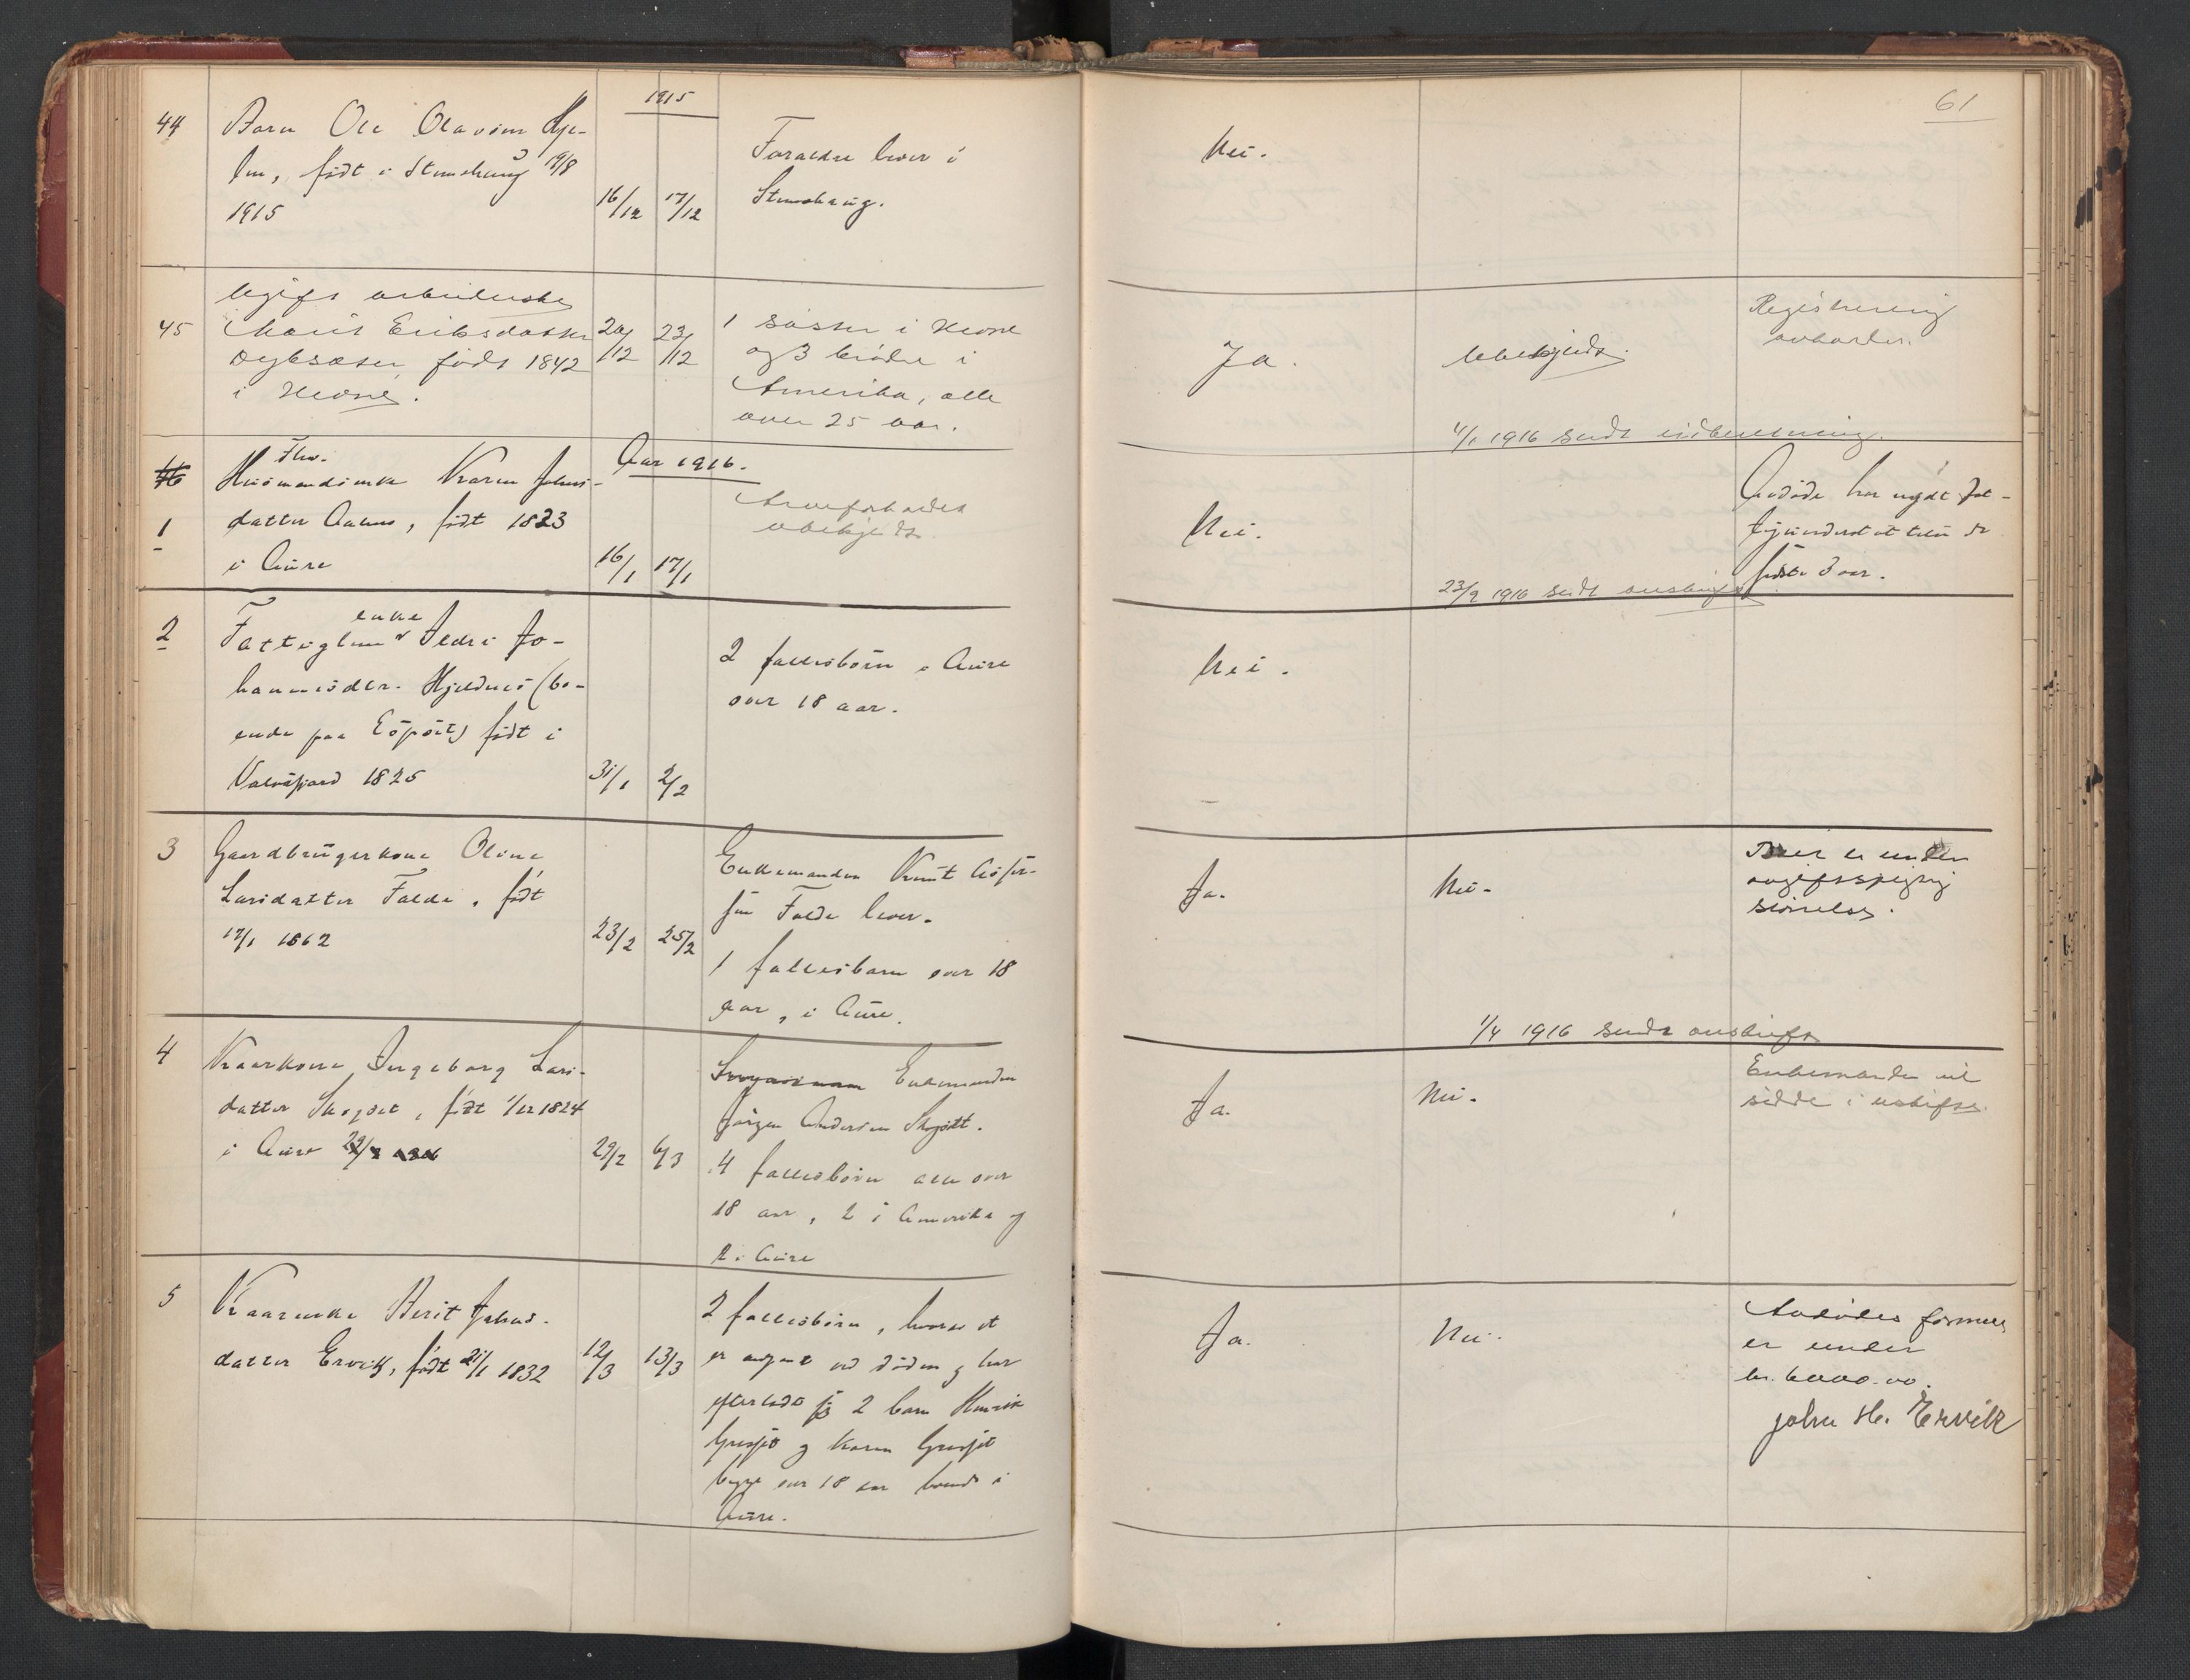 1915
61
44
Barn Ole Olavsen Hje-
født i Stemshaug 19/8
1915
16/12 17/12
Foraldre lever i
Stemshaug.
Nei.
45
Ugift arbeiderske
Marit Eriksdatter
født 1842
i Hevne.
20/12 23/12
1 søster i Hevne
og 3 brødre i
Amerika, alle
over 25 aar.
Ja.
Ubekjendt.
Registrering
avholdes.
4/1 1916 sendt indberetning.
Aar 1916.
46
1
Fhv.
Husmandsenke Karen Johns-
datter født 1823
i Aure
16/1 17/1
Arveforholdet
ubekjendt.
Nei.
Avdøde har nydt fat-
tigunderstøttelse de
sidste 3 aar.
23/2 1916 sendt avskrift
2
Fattiglem enke Sedri Jo-
hannesdtr. Hjeldnes (bo-
ende paa Espset) født i
Valsøfjord 1825
31/1 2/2
2 fællesbørn i Aure
over 18 aar.
Nei.
3
Gaardbrugerkone Oline
Larsdatter Falde, født
17/1 1862
23/2 25/2
Enkemanden Knut
Falde lever.
1 fællesbarn over 18
aar, i Aure.
Ja.
Nei.
Boet er under
avgiftspligtig
størrelse.
1/4 1916 sendt avskrift
4
Kaarkone Ingeborg Lars-
datter født 1/12 1824
i Aure
29/2 6/3
Enkemanden
Jørgen Andersen
4 fællesbørn alle over
18 aar, 2 i Amerika og
2 i Aure
Ja.
Nei.
Enkemanden vil
sidde i uskifte.
5
Kaarenke Berit Johns-
datter Ervik, født 21/1 1832
12/3 13/3
2 fællesbørn, hvorav et
er avgaat ved døden og har
efterladt sig 2 barn Henrik
og Karen
begge over 18 aar boende i
Aure.
Ja.
Nei.
Avdødes formue
er under
kr. 6000.00.
John H. Ervik